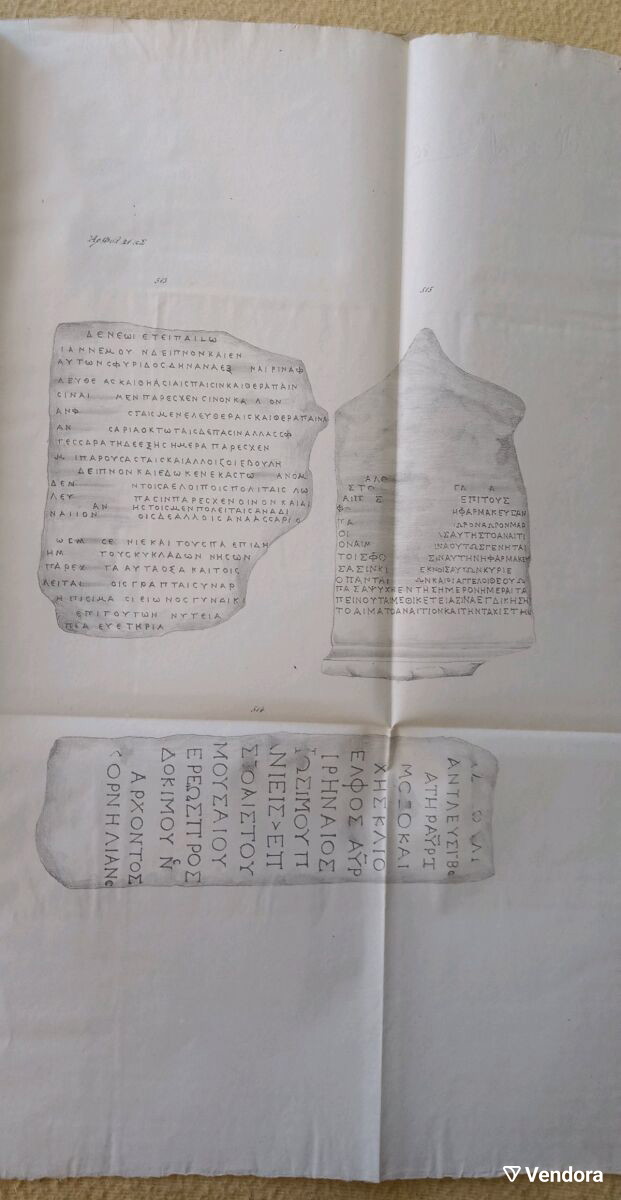 513
ΔΕΝΕΩΙΕΤΕΙΠΑΙ
ΙΑΝΝΕΜΟΥ ΝΔΕΙΠΝΟΝΚΑΙΕΝ
ΑΥΤΩΝΣΦΥΡΙΔΟΣΔΗΝΑΝΑΕΞ ΝΑΙΡΙΝΑΦ
ΛΕΥΘΕ ΑΣΚΑΙΘΗΛΣΙΑΙΣΠΑΣΙΝΚΑΙΘΕΡΑΠΑΙΝ
ΣΙΝΑΙ ΜΕΝΠΑΡΕΣΧΕΝΣΙΝΟΝΚΑ Λ ΟΝ
ΑΝΦ ΣΤΑΙΣΜΕΝΕΛΕΥΘΕΡΑΙΣΚΑΙΘΕΡΑΠΑΙΝΑ
ΑΝ ΣΑΡΙΑΟΚΤΩΤΑΙΣΔΕΠΑΣΙΝΑΛΛΑΣΣΦ
ΤΕΣΣΑΡΑΤΗΔΕΕΞΗΣΗΜΕΡΑΠΑΡΕΣΧΕΝ
ΠΑΡΟΥΣΑΣΤΑΙΣΚΑΙΑΛΛΟΙΖΟΙΣΒΟΥΛΗ
ΔΕΙΠΝΟΝΚΑΙΕΔΩΚΕΝΕΚΑΣΤΩ ΑΝΟΜ
ΔΕΝ ΝΤΟΙΣΔΕΛΟΙΠΟΙΣΠΟΛΙΤΑΙΣ ΛΩ
ΛΕΥ ΠΑΣΙΝΠΑΡΕΣΧΕΝΟΙΝΟΝΚΑΙΔΙ
ΑΝ ΗΣΤΟΙΣΜΕΝΠΟΛΕΙΤΑΙΣΑΝΑΔΙ
ΝΑΙΙΟΝ ΟΙΣΔΕΑΛΛΟΙΣΑΝΑΑΣΣΑΡΙΟ
ΩΣΜ ΣΕ ΝΙΕΚΑΙΤΟΥΣΠΑ ΕΠΙΔΗ
ΗΜ ΤΟΥΣΚΥΚΛΑΔΩΝ ΝΗΣΩΝ
ΠΑΡΕΧ ΤΑ ΑΥΤΑΟΣΑ ΚΑΙΤΟΙΣ
ΛΕΙΤΑΙ ΟΙΣΓΡΑΠΤΑΙΣΥΝΑΡ
ΣΙΕΙΩΝΟΣΓΥΝΔΙΚΙ
ΕΠΙΤΟΥΤΩΝ ΝΥΓΕΙΑ
ΕΥΕΤΗΡΙΑ
515
ΑΛΟ
ΣΤΟ ΓΑ Α
ΑΙΠ Σ ΕΠΙΤΟΥΣ
ΗΦΑΡΜΑΚΕΥΣΑΝ
ΤΑ ΔΡΟΝΑΔΡΟΝΜΑΡ
ΟΙ ΣΑΥΤΗΣΤΟΑΝΑΙΤΙ
ΟΝΑΙΜ ΙΝΑΟΥΤΩΣΓΕΝΗΤΑΙ
ΤΟΙΣΦΟ ΣΙΝΑΥΤΗΝΗΦΑΡΜΑΚΕΥ
ΣΑΣΙΝΚΙ ΕΚΝΟΙΣΑΥΤΩΝΚΥΡΙΕ
ΟΠΑΝΤΑ ΩΝΚΑΙΟΙΑΓΓΕΛΟΙΘΕΟΥΩ
ΠΑΣΑΨΥΧΗΕΝΤΗΣΗΜΕΡΟΝΗΜΕΡΑΙΤΑ
ΠΕΙΝΟΥΤΑΙΜΕΘΙΚΕΤΕΙΑΣΙΝΑΕΓΔΙΚΗΣΗ
ΤΟΑΙΜΑΤΟΑΝΑΙΤΙΟΝΚΑΙΤΗΝΤΑΧΙΣΤΗΝ
514
ΑΝΤΛΕΥΣΙΒ
ΑΤΗΡΑΫΡΙ
ΜΟΞΟΚΑΙ
ΧΗΣΚΛΙΟ
ΕΛΦΟΣ ΑΫΡ
ΙΡΗΝΑΙΟΣ
ΩΣΙΜΟΥ Π
ΝΙΕΙΣ>ΕΠ
ΣΤΟΛΙΣΤΟΥ
ΜΟΥΣΑΙΟΥ
ΕΡΕΩΣΠΡΟΣ
ΔΟΚΙΜΟΥ Ν
ΑΡΧΟΝΤΟΣ
ΟΡΝΗΛΙΑΝ
Vendora